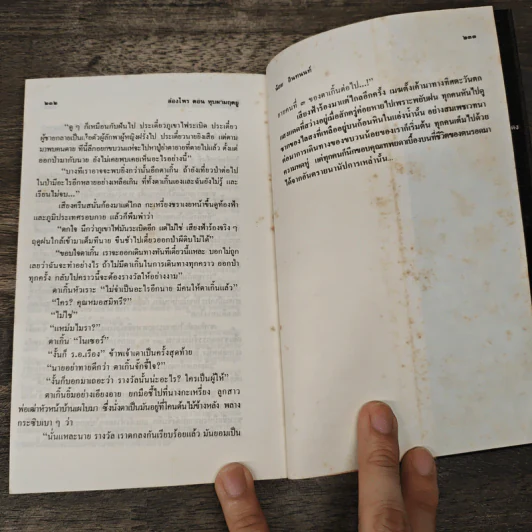 ๒๓๒
ล่องไพร ตอน หุบผามฤตยู
"ดู ๆ ก็เหมือนกับฝันไป ประเดี๋ยวภูเขาไฟระเบิด ประเดี๋ยว
ผู้ชายกลายเป็นเ ตัวผู้ลักพาผู้หญิงฝรั่งไป ประเดี๋ยวนายยังเสือ แต่ดัน
มาพบคนตาย ที่นี่ลึกออกขบวนแห่จะไปหาปู่ย่าตายายที่ตายไปแล้ว ตั้งแต่
ออกป่ามากับนาย ยังไม่เคยพบเคยเห็นอะไรอย่างนี้"
"บางทีเราอาจจะพบยิ่งกว่านั้นอีกตาเกิ้น ถ้ายังเที่ยวป่าต่อไป
ในป่ามีอะไรอีกหลายอย่างเหลือเกิน ที่ทั้งตาเกิ้นเองและฉันยังไม่รู้ และ
เรียนไม่จบ..."
เสียงครืนสนั่นก้องมาแต่ไกล กะเหรี่ยงชราเงยหน้าขึ้นดูท้องฟ้า
และภูมิประเทศรอบกาย แล้วก็พึมพำว่า
"ตกใจ นึกว่าภูเขาไฟมันระเบิดอีก แต่ไม่ใช่ เสียงฟ้าร้องจริง ๆ
ฤดูฝนใกล้เข้ามาเต็มทีนาย ขืนช้าไปเดี๋ยวออกป่าผีดิบไม่ได้"
"ขอบใจตาเกิ้น เราจะออกเดินทางทันทีเดี๋ยวนี้แหละ บอกไม่ถูก
เลยว่าฉันจะทำอย่างไร ถ้าไม่มีตาเกิ้นในการเดินทางทุกคราว ออกป่า
ทุกครั้ง กลับไปคราวนี้จะต้องรางวัลให้อย่างงาม"
ตาเกิ้นหัวเราะ "ไม่จำเป็นอะไรอีกนาย มีคนให้ตาเกิ้นแล้ว"
"ใคร? คุณหมอสมิทรึ?"
"ไม่ใช่"
"แหม่มไมรา?"
ตาเกิ้น "โนเซอร์"
"งั้นก็ ร.อ.เรือง" ข้าพเจ้าเดาเป็นครั้งสุดท้าย
"นายอย่าทายดีกว่า ตาเกิ้นจั๊กจี้ใจ?"
"งั้นก็บอกมาเถอะว่า รางวัลนั้นน่ะอะไร? ใครเป็นผู้ให้"
ตาเกิ้นยิ้มอย่างเอียงอาย ยกมือชี้ไปที่นางกะเหรี่ยง ลูกสาว
พ่อเฒ่าหัวหน้าบ้านผโบมา ซึ่งนั่งตาเป็นมันอยู่ที่โคนต้นไม้ข้างหลัง พลาง
กระซิบเบา ๆ ว่า
"นั่นแหละนาย รางวัล เราตกลงกันเรียบร้อยแล้ว มันยอมเป็น
น้อย อินทนนท์
๒๓๓
ภรรยาคนที่ ๓ ของตาเกิ้นต่อไป...!"
เสียงฟ้าร้องมาแต่ไกลอีกครั้ง เมฆตั้งเค้ามาทางทิศตะวันตก
แสงแดดที่สว่างอยู่เมื่อสักครู่ค่อยหายไปเพราะพยับฝน ทุกคนหันไปดู
ต่อมาการเดินทางของขบวนน้อยของเราก็เริ่มต้น ทุกคนเต็มไปด้วย
ความหดหู่ แต่ทุกคนก็นึกขอบคุณเทพยดาเบื้องบนที่ชีวิตของตนรอดมา
ได้จากอันตรายนานัปการเหล่านั้น...